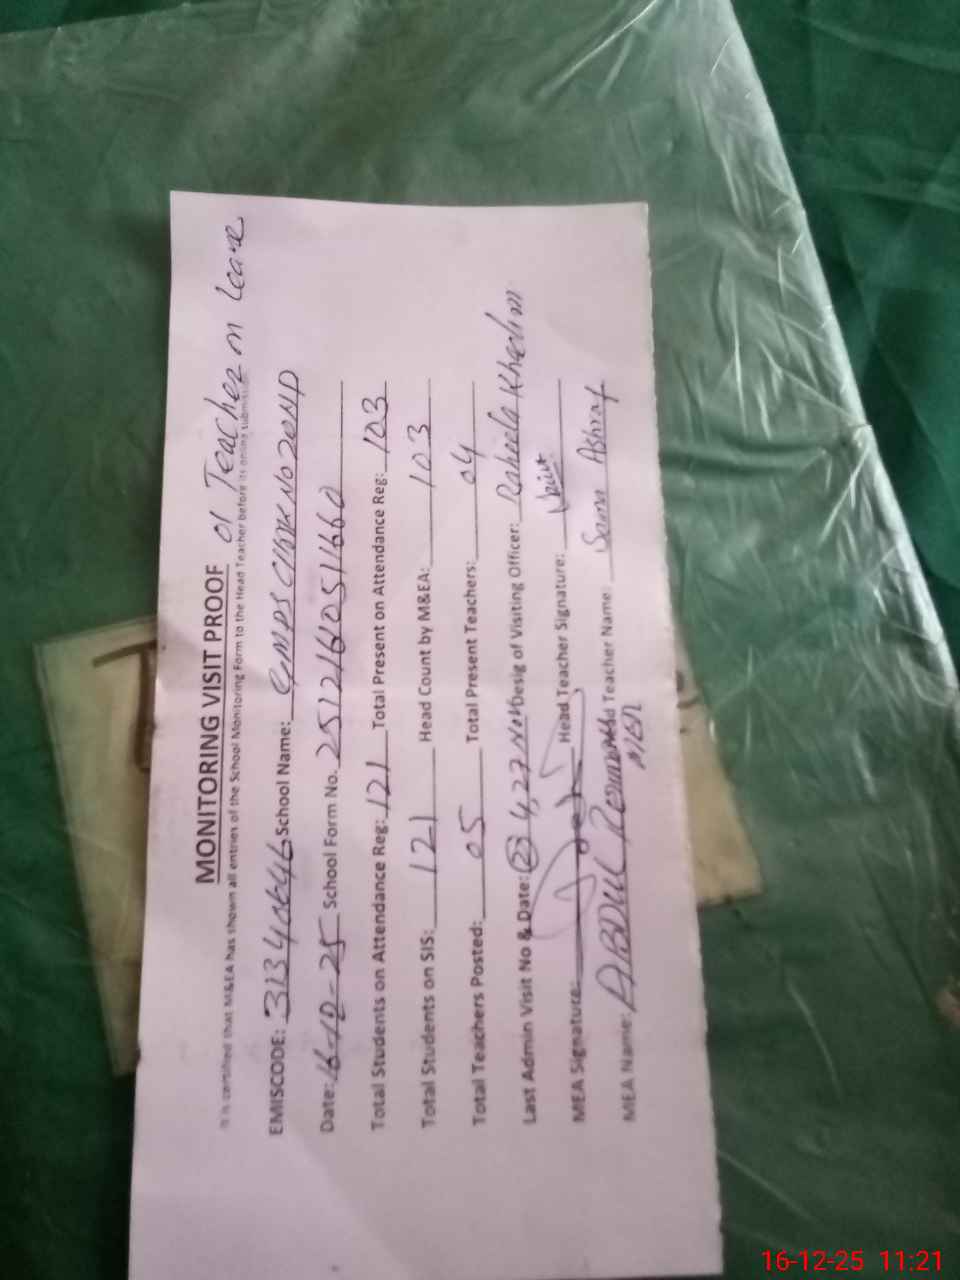 MONITORING VISIT PROOF 01 Teacher on Leave
It is certified that M&EA has shown all entries of the School Monitoring Form to the Head Teacher before its online submission
EMISCODE: School Name: GMPS Chak No
Date: 16-12-25 School Form No. 25121610511660
Total Students on Attendance Reg: 121 Total Present on Attendance Reg: 103
Total Students on SIS: 121 Head Count by M&EA: 103
Total Teachers Posted: 05 Total Present Teachers: 04
Last Admin Visit No & Date: (2) 4,27 Nov Desig of Visiting Officer: Raheela Khadim
MEA Signature: Head Teacher Signature:
MEA Name: ABDUL Head Teacher Name: Sama Ashraf
16-12-25 11:21